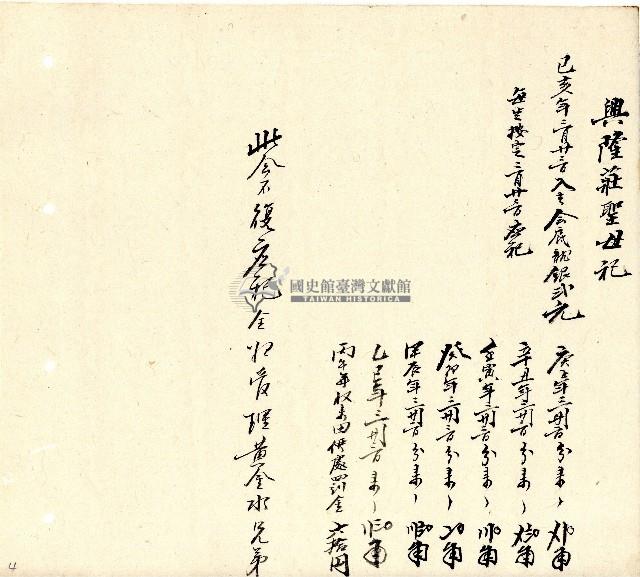 興隆莊聖母祀
己亥年三月廿三日入主会底龍銀弍元
每年按定三月廿三日慶祀
庚子年三月廿三日分来
辛丑年三月廿三日分来 角
壬寅年三月廿三日分来 角
癸卯年三月廿三日分来 角
甲辰年三月廿三日分来 角
乙巳年三月廿三日来 角
丙午年收来田供處罰金 円
此会不復慶祀全归管理黄金水兄弟
國史館臺灣文獻館
TAIWAN HISTORICA
4